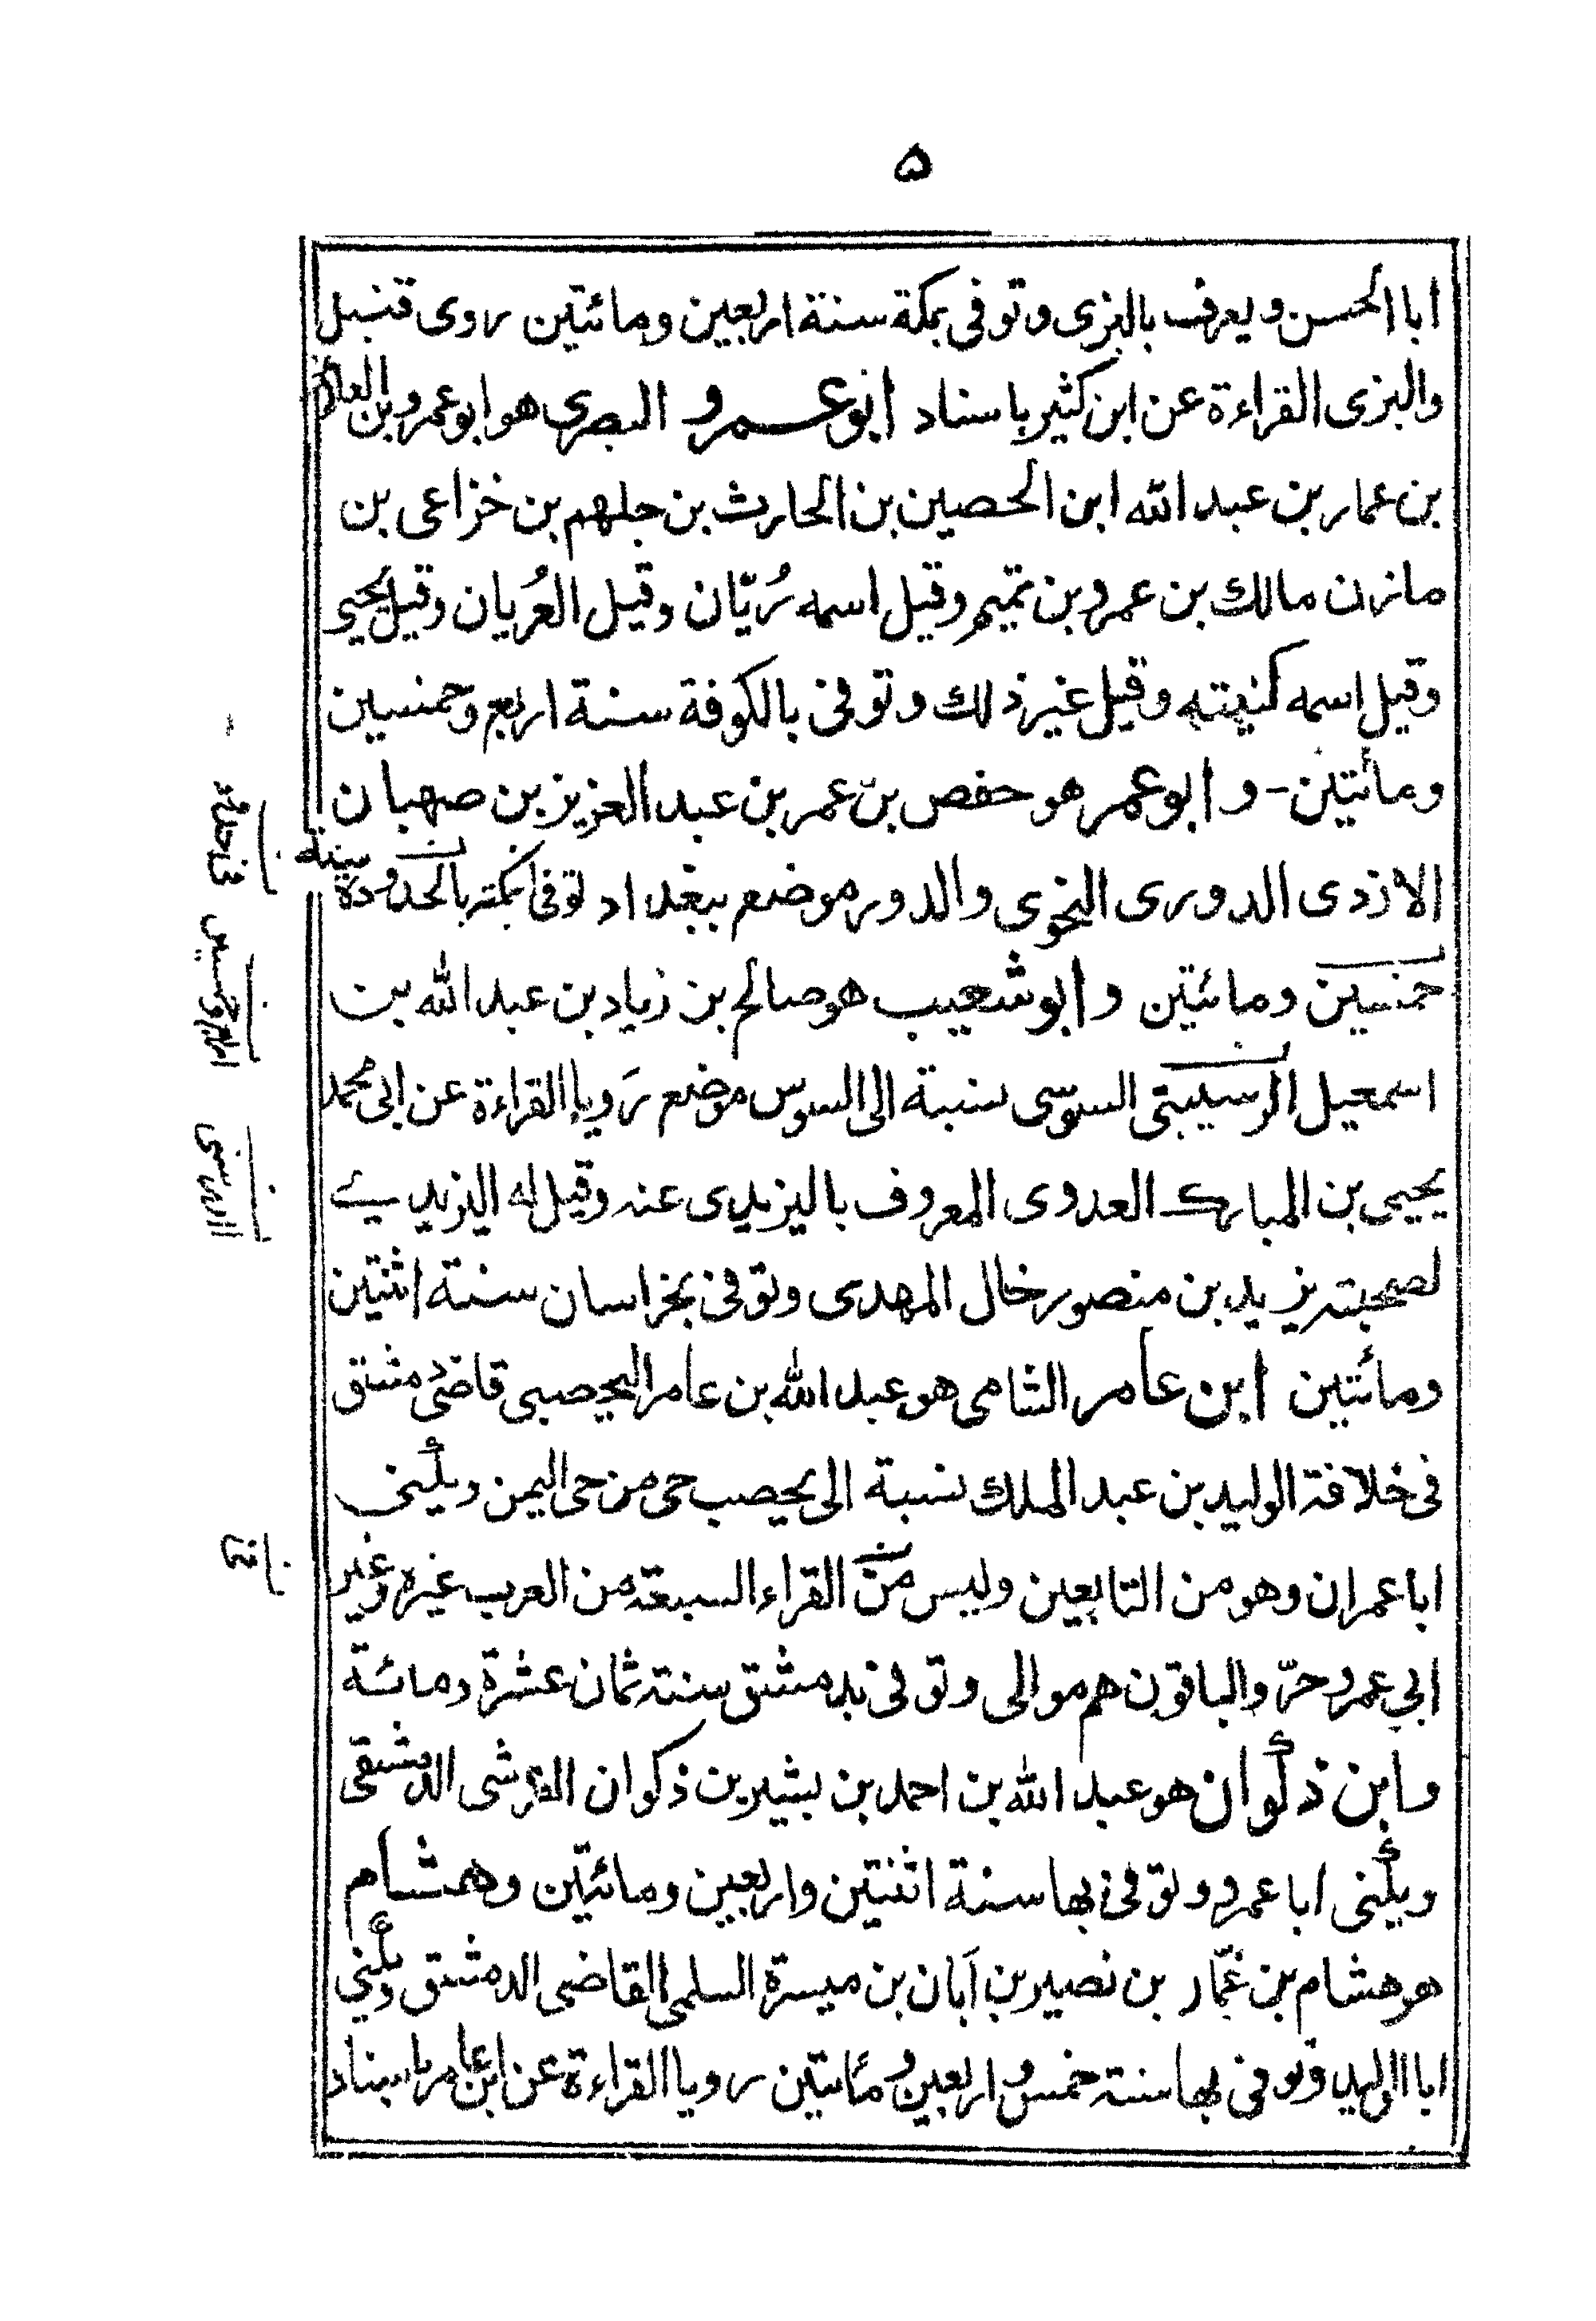 ۵
ابا الحسن ويعرف بالبزى وتوفى بمكة سنة اربعين ومائتين روى قنبل
والبزى القراءة عن ابن كثير باسناد ابو عمرو البصرى هو ابو عمرو بن العلاء
بن عمار بن عبد الله ابن الحصين بن الحارث بن جلهم بن خزاعى بن
مازن مالك بن عمرو بن تميم وقيل اسمه رُبّان وقيل العُريان وقيل يحيى
وقيل اسمه كنيته وقيل غير ذلك وتوفى بالكوفة سنة اربع وخمسين
ومائتين - و ابو عمر هو حفص بن عمر بن عبد العزيز بن صهبان
الازدى الدورى النحوى والدور موضع ببغداد توفى سنة
خمسين ومائتين و ابو شعيب هو صالح بن زياد بن عبد الله بن
اسمعيل الرسيبتى السوسى نسبة الى السوس موضع رَويا القراءة عن ابى محمد
يحيى بن المبارك العدوى المعروف باليزيدى عنه وقيل له اليزيدى
لصحبته يزيد بن منصور خال المهدى وتوفى بخراسان سنة اثنتين
ومائتين ابن عامر الشامى هو عبد الله بن عامر اليحصبى قاضى دمشق
فى خلافة الوليد بن عبد الملك نسبة الى يحصب حى من حى اليمن ويكنى
ابا عمران وهو من التابعين وليس من القراء السبعة من العرب غيره وغير
ابى عمرو حرّ والباقون هم موالى وتوفى بدمشق سنة ثمان عشرة ومائة
وابن ذكوان هو عبد الله بن احمد بن بشير بن ذكوان القرشى الدمشقى
ويكنى ابا عمرو وتوفى بها سنة اثنتين واربعين ومائتين وهشام
هو هشام بن عمّار بن نصير بن اَبان بن ميسرة السلمى القاضى الدمشق ويكنى
ابا الوليد وتوفى بها سنة خمس واربعين ومائتين رويا القراءة عن ابن عامر باسناد